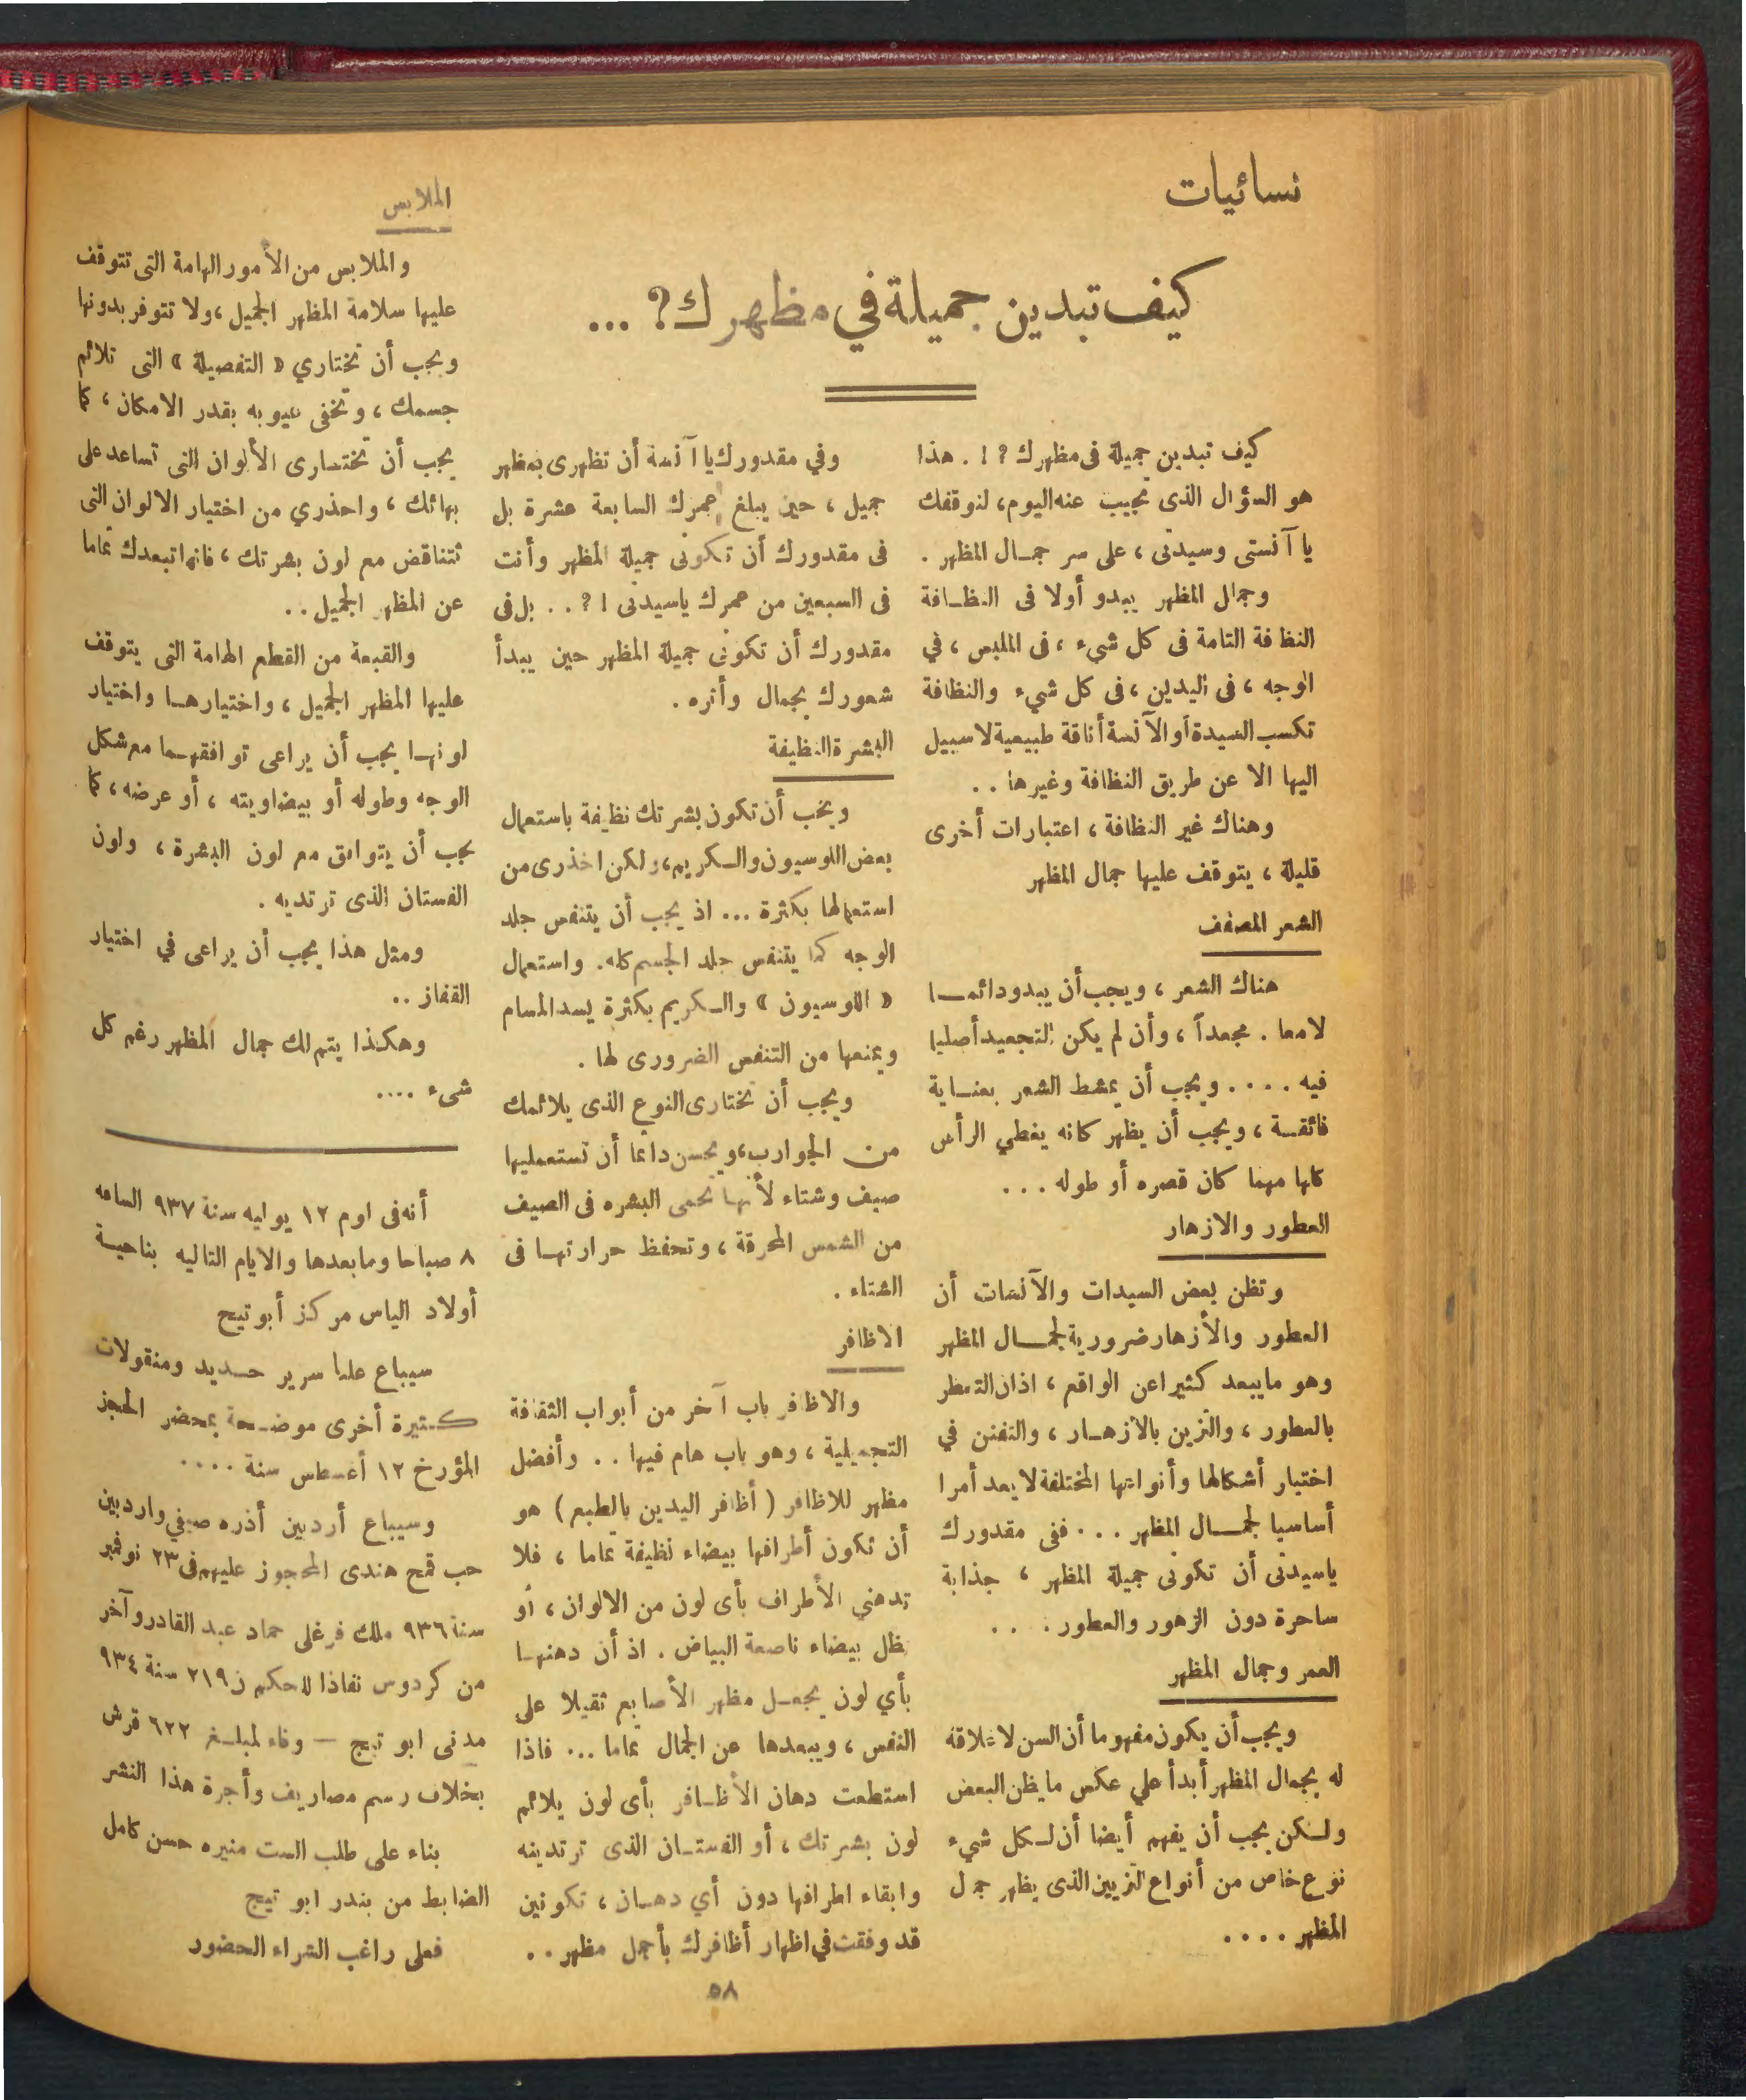 نسائيات
كيف تبدين جميلة في مظهرك؟ ...
كيف تبدين جميلة فى مظهرك ؟ ! . هذا
هو السؤال الذى نجيب عنه اليوم، لنوقفك
يا آنستى وسيدتى ، على سر جمـال المظهر .
وجمال المظهر يبدو أولا فى النظـافة
النظافة التامة فى كل شيء ، فى الملبس ، في
الوجه ، فى اليدين ، فى كل شيء والنظافة
تكسب السيدة أو الآنسة أناقة طبيعية لا سبيل
اليها الا عن طريق النظافة وغيرها . .
وهناك غير النظافة ، اعتبارات أخرى
قليلة ، يتوقف عليها جمال المظهر
الشعر المصفف
هناك الشعر ، ويجب أن يبدو دائمـــا
لامعا . مجعداً ، وأن لم يكن التجعيد أصليا
فيه . . . . ويجب أن يمشط الشعر بعنـاية
فائقـة ، ويجب أن يظهر كانه يغطي الرأس
كلها مهما كان قصره أو طوله . . .
العطور والازهار
وتظن بعض السيدات والآنسات أن
العطور والأزهار ضرورية لجمـــال المظهر
وهو ما يبعد كثيرا عن الواقع ، اذ ان التعطر
بالعطور ، والتزين بالازهـار ، والتفنن في
اختيار أشكالها وأنواعها المختلفة لا يعد أمرا
أساسيا لجمـــال المظهر . . . ففى مقدورك
ياسيدتى أن تكونى جميلة المظهر ، جذابة
ساحرة دون الزهور والعطور . . .
العمر وجمال المظهر
ويجب أن يكون مفهوما أن السن لا علاقة
له بجمال المظهر أبدأ علي عكس ما يظن البعض
ولـكن يجب أن يفهم أيضا أن لـكل شيء
نوع خاص من أنواع التزيين الذى يظهر جمال
المظهر . . . .
وفي مقدورك يا آنسة أن تظهرى بمظهر
جميل ، حين يبلغ عمرك السابعة عشرة بل
فى مقدورك أن تكونى جميلة المظهر وأنت
فى السبعين من عمرك ياسيدتى ! ؟ . . بل فى
مقدورك أن تكونى جميلة المظهر حين يبدأ
شعورك بجمال وأثره .
البشرة النظيفة
ويجب أن تكون بشرتك نظيفة باستعمال
بعض اللوسيون والـكريم، ولكن احذرى من
استعمالها بكثرة ... اذ يجب أن يتنفس جلد
الوجه كما يتنفس جلد الجسم كله. واستعمال
« اللوسيون » والـكريم بكثرة يسد المسام
ويمنعها من التنفس الضرورى لها .
ويجب أن تختارى النوع الذى يلائمك
من الجوارب، ويحسن دائما أن تستعمليها
صيف وشتاء لأنها تحمى البشره فى الصيف
من الشمس المحرقة ، وتحفظ حرارتهـا فى
الشتاء .
الاظافر
والاظافر باب آخر من أبواب الثقافة
التجميلية ، وهو باب هام فيها . . وأفضل
مظهر للاظافر ( أظافر اليدين بالطبع ) هو
أن تكون أطرافها بيضاء نظيفة تماما ، فلا
تدهني الأطراف بأى لون من الالوان ، أو
تظل بيضاء ناصعة البياض . اذ أن دهنهـا
بأي لون يجعـل مظهر الأصابع ثقيلا على
النفس ، ويبعدها عن الجمال تماما ... فاذا
استطعت دهان الأظـافر بأى لون يلائم
لون بشرتك ، أو الفستـان الذى ترتدينه
وابقاء اطرافها دون أي دهـان ، تكونين
قد وفقت في اظهار أظافرك بأجمل مظهر . .
الملابس
والملابس من الأمور الهامة التى تتوقف
عليها سلامة المظهر الجميل ، ولا تتوفر بدونها
ويجب أن تختاري « التفصيلة » التى تلائم
جسمك ، وتخفى عيوبه بقدر الامكان ، كما
يجب أن تختـارى الألوان التى تساعد على
بهائك ، واحذري من اختيار الالوان التى
تتناقض مع لون بشرتك ، فانها تبعدك تماما
عن المظهر الجميل . .
والقبعة من القطع الهامة التى يتوقف
عليها المظهر الجميل ، واختيارهـا واختيار
لونهـا يجب أن يراعى توافقهـما مع شكل
الوجه وطوله أو بيضاويته ، أو عرضه ، كما
يجب أن يتوافق مع لون البشرة ، ولون
الفستان الذى ترتديه .
ومثل هذا يجب أن يراعى في اختيار
القفاز ..
وهكذا يتم لك جمال المظهر رغم كل
شىء ....
أنه فى اوم ١٢ يوليه سنة ٩٣٧ الساعه
٨ صباحا وما بعدها والايام التاليه بناحيـة
أولاد الياس مركز أبو تيج
سيباع علنا سرير حـديد ومنقولات
كـثيرة أخرى موضـحة بمحضر الحجز
المؤرخ ١٢ أغسطس سنة . . . .
وسيباع أردبين أذره صيفي واردبين
حب قمح هندى المحجوز عليهم فى ٢٣ نوفمبر
سنة ٩٣٦ ملك فرغلى حماد عبد القادر وآخر
من كردوس نفاذا للحكم ن ٢١٩ سنة ٩٣٤
مدنى ابو تيج — وفاء لمبلـغ ٦٢٢ قرش
بخلاف رسم مصاريف وأجرة هذا النشر
بناء على طلب الست منيره حسن كامل
الضابط من بندر ابو تيج
فعلى راغب الشراء الحضور
٥٨